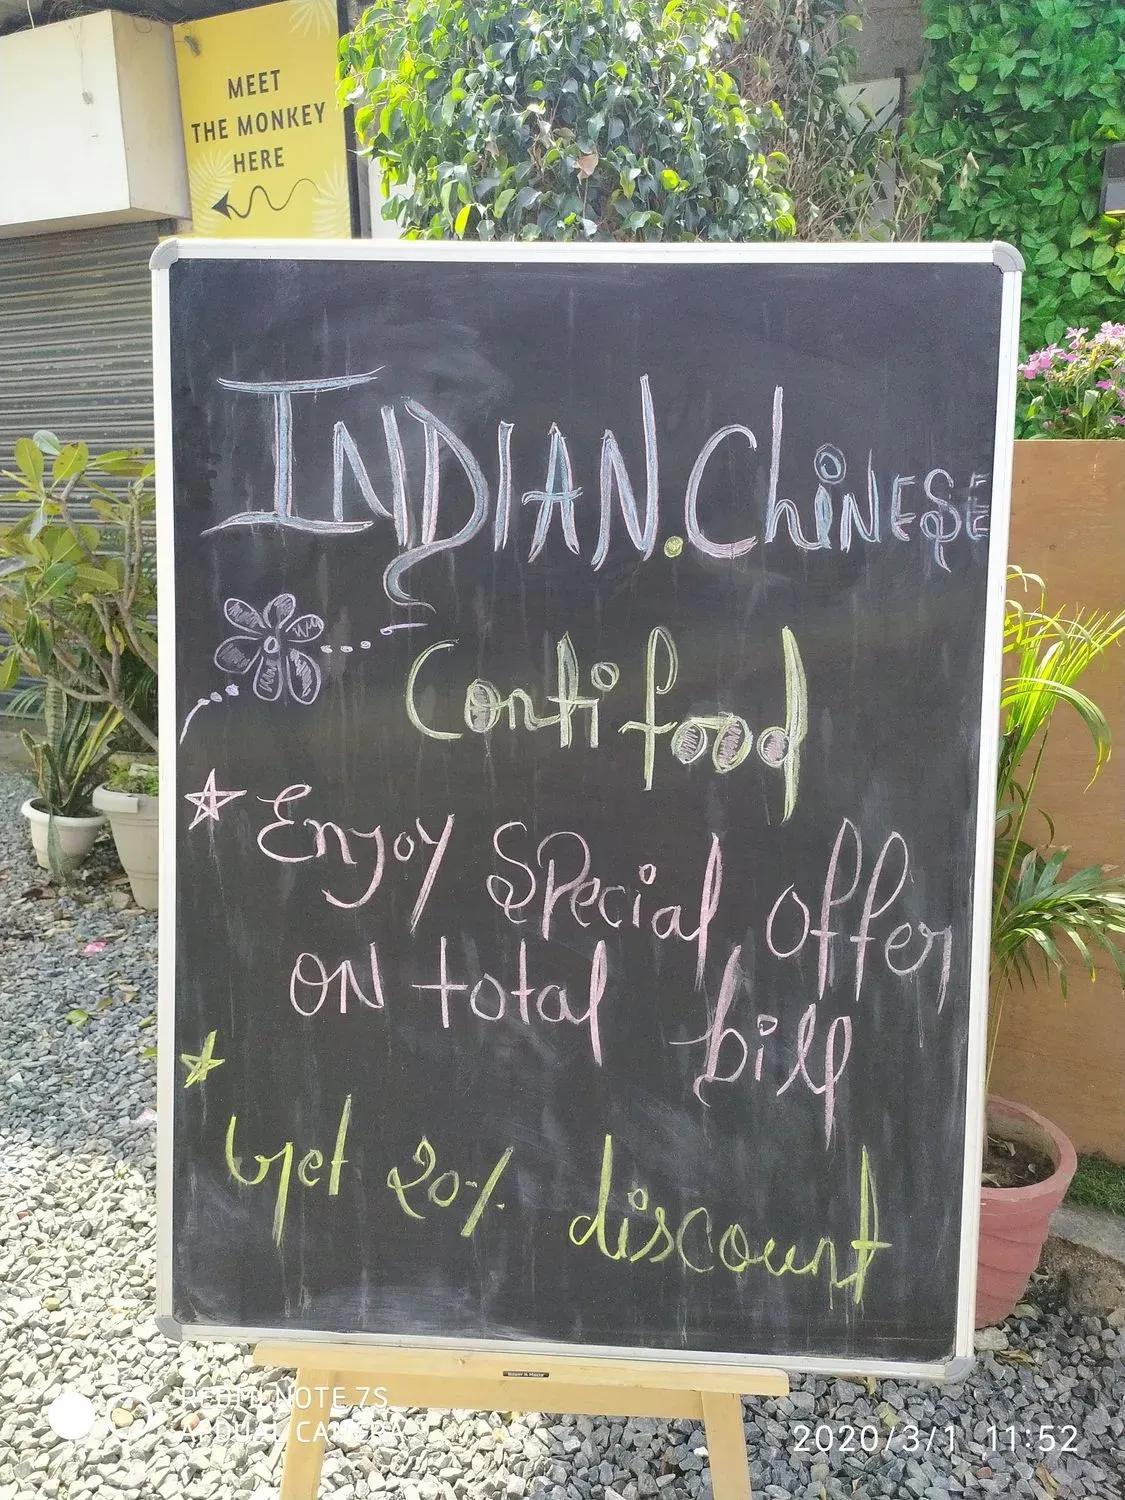 MEET
THE MONKEY
HERE
INDIAN.ChiNESE
Conti food
Enjoy Special offer
ON total bill
Get 20% discount
REDMI NOTE 7S
AI DUAL CAMERA
2020/3/1 11:52